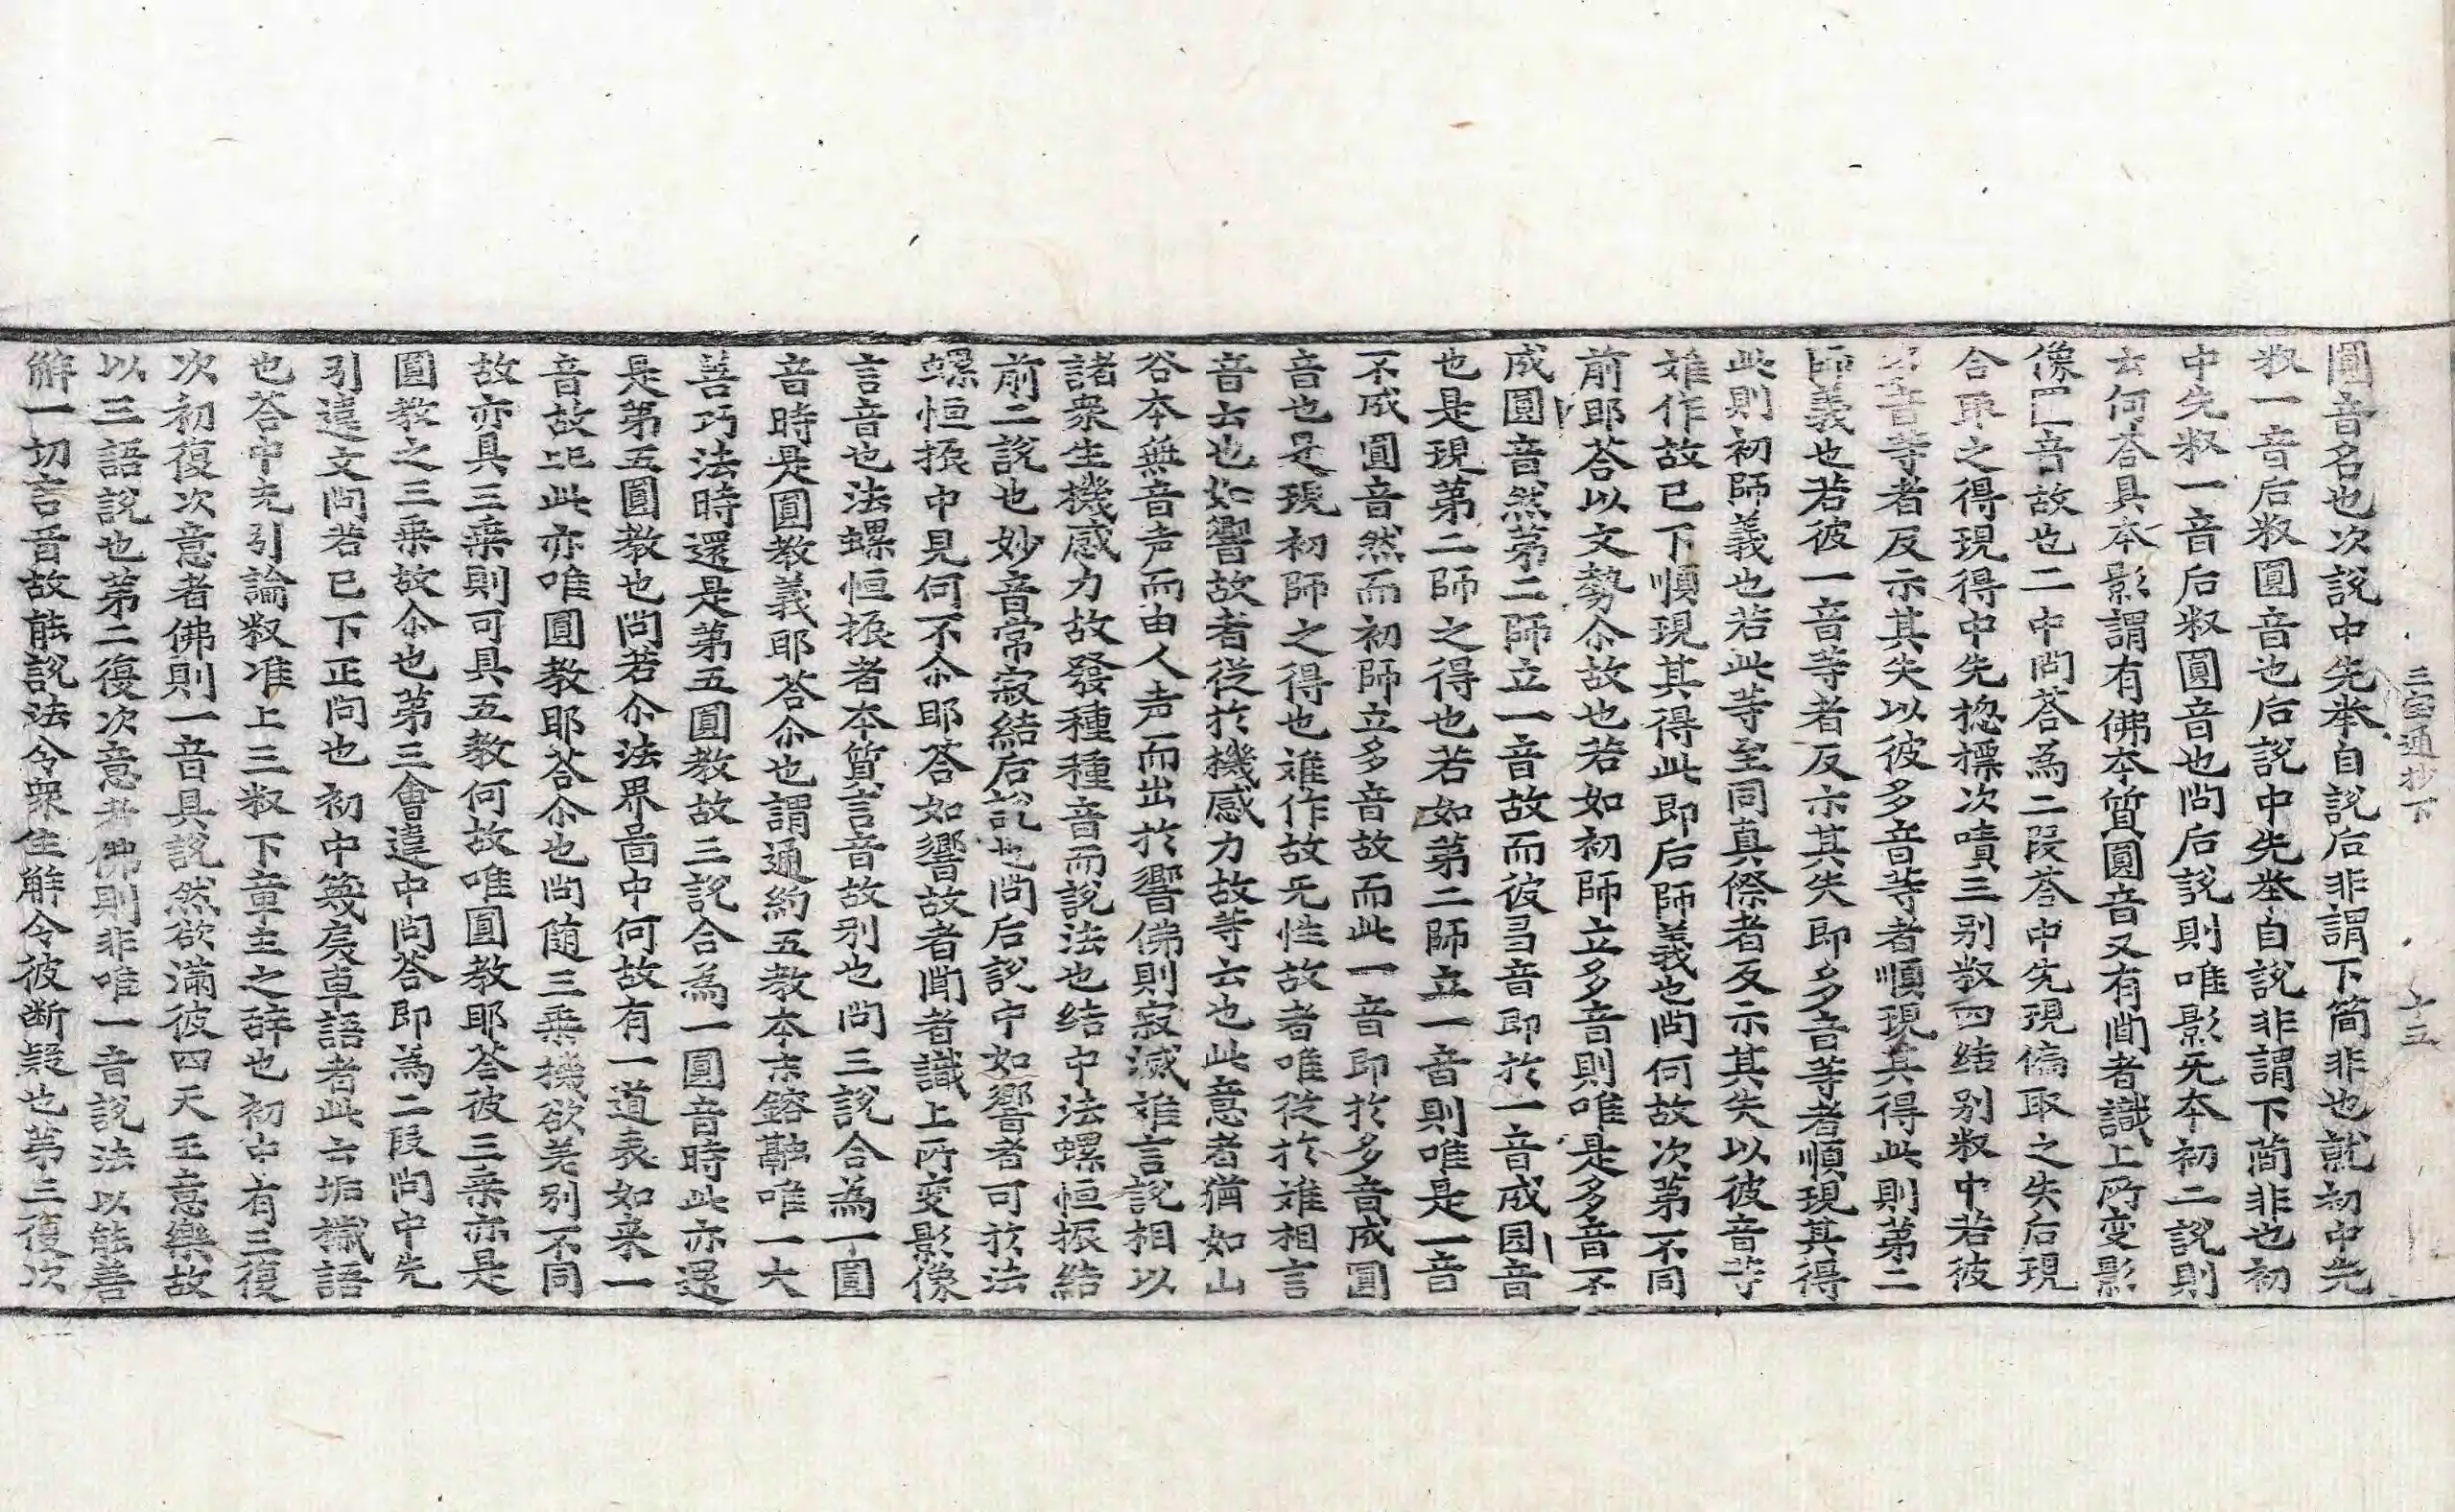 三宝通抄下　十五
圓音名也次說中先举自說后非謂下简非也就初中先
叙一音后叙圓音也后說中先举自說非謂下简非也初
中先叙一音后叙圓音也问后說則唯影无本初二說則
云何荅具本影謂有佛本質圓音又有闻者識上所变影
像音故也二中问荅為二段荅中先現偏取之失后現
合取之得現得中先揔標次責三别叙四结别叙中若彼
多音等者反示其失以彼多音等者順現其得此則第二
師義也若彼一音等者反示其失即多音等者順現其得
此則初師義也若此等至同真際者反示其失以彼音等
雖作故已下順現其得此即后師義也问何故次第不同
前耶荅以文勢尒故也若如初師立多音則唯是多音不
成圓音然第二師立一音故而彼多音即於一音成圓音
也是現第二師之得也若如第二師立一音則唯是一音
不成圓音然而初師立多音故而此一音即於多音成圓
音也是現初師之得也雖作故无性故者唯從於雖相言
音云也如響故者從於機感力故等云也此意者猶如山
谷本無音声而由人声而出於響佛則寂滅雖言說相以
諸衆生機感力故發種種音而說法也结中法螺恒振結
前二說也妙音常寂結后說也问后說中如響者可於法
螺恒振中見何不尒耶荅如響故者闻者識上所変影像
言音也法螺恒振者本質言音故别也问三說合為一圓
音時是圓教義耶荅尒也謂通約五教本末鎔融唯一大
善巧法時還是第五圓教故三說合為一圓音時此亦還
是第五圓教也问若尒法界啚中何故有一道表如来一
音故此亦唯圓教耶荅尒也问随三乗機欲差别不同
故亦具三乗則可具五教何故唯圓教耶荅彼三乗亦是
圓教之三乗故尒也第三會違中问荅即為二段问中先
引違文问若已下正问也初中篾戾車語者此云垢穢語
也荅中先引論叙准上三叙下章主之辞也初中有三復
次初復次意者佛則一音具說然欲滿彼四天王意樂故
以三語說也第二復次意者佛則非唯一音說法以能善
解一切言音故能說法令衆生解令彼断疑也第三復次